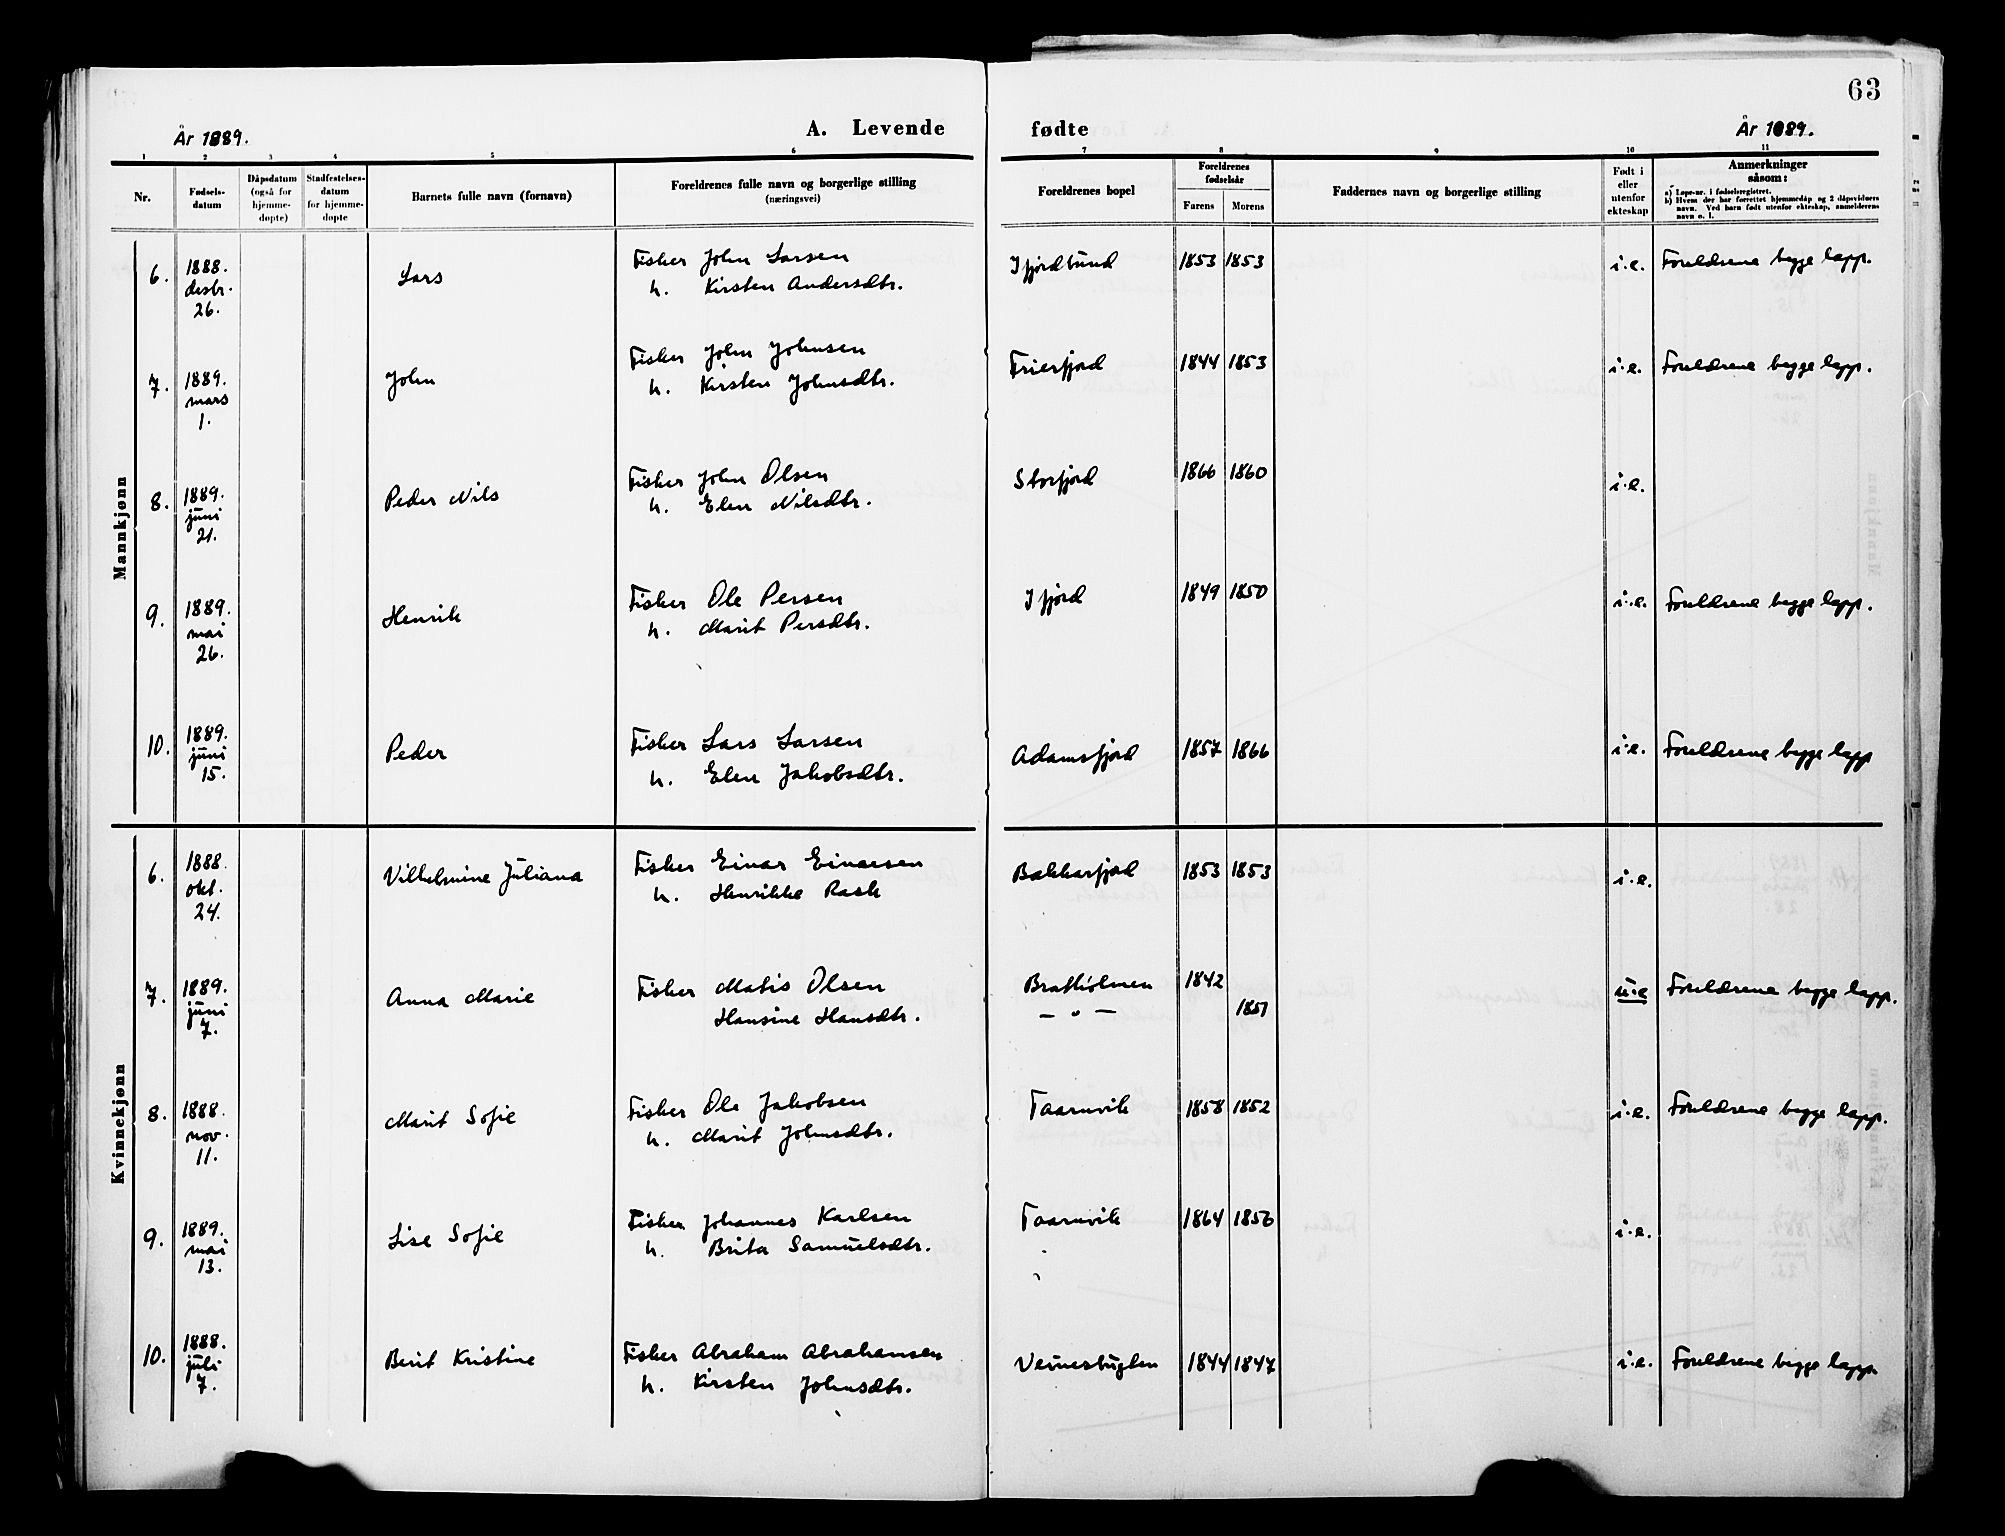 63
År 1889.
A. Levende fødte
År 1889.
1 2 3 4 5 6 7 8 9 10 11
Nr.
Fødsels-
datum
Dåpsdatum
(også for
hjemme-
døpte)
Stadfestelses-
datum
for hjemme-
døpte
Barnets fulle navn (fornavn)
Foreldrenes fulle navn og borgerlige stilling
(næringsvei)
Foreldrenes bopel
Foreldrenes
fødselsår
Farens Morens
Faddernes navn og borgerlige stilling
Født i
eller
utenfor
ekteskap
Anmerkninger
såsom:
a) Løpe-nr. i fødselsregistret.
b) Hvem der har forrettet hjemmedåp og 2 dåpsvidners
navn. Ved barn født utenfor ekteskap, anmelderens
navn o. l.
Mannkjønn
6. 1888. desbr. 26. Lars Fisker John Larsen Ifjordbund 1853 1853 i.e. Foreldrene begge lapp.
h. Kirsten Andersdtr.
7. 1889. mars 1. John Fisker John Johnsen Frierfjord 1844 1853 i.e. Foreldrene begge lapp.
h. Kirsten Johnsdtr.
8. 1889. juni 21. Peder Nils Fisker John Olsen Storfjord 1866 1860 i.e.
h. Elen Nilsdtr.
9. 1889. mai 26. Henrik Fisker Ole Persen Ifjord 1849 1850 i.e. Foreldrene begge lapp.
h. Marit Persdtr.
10. 1889. juni 15. Peder Fisker Lars Larsen Adamsfjord 1857 1866 i.e. Foreldrene begge lapp
h. Elen Jakobsdtr.
Kvinnekjønn
6. 1888. okt. 24. Vilhelmine Juliana Fisker Einar Einarsen Bakkarfjord 1853 1853 i.e.
h. Henrikke Rask
7. 1889. juni 7. Anna Marie Fisker Matis Olsen Bratholmen 1842 u.e Foreldrene begge lapp.
Hansine Hansdtr. — " — 1851
8. 1888. nov. 11. Marit Sofie Fisker Ole Jakobsen Taarnvik 1858 1852 i.e. Foreldrene begge lapp.
h. Marit Johnsdtr.
9. 1889. mai 13. Lise Sofie Fisker Johannes Karlsen Taarnvik 1864 1856 i.e.
h. Brita Samuelsdtr.
10. 1888. juli 7. Berit Kristine Fisker Abraham Abrahamsen 1844 1847 i.e. Foreldrene begge lapp.
h. Kirsten Johnsdtr.